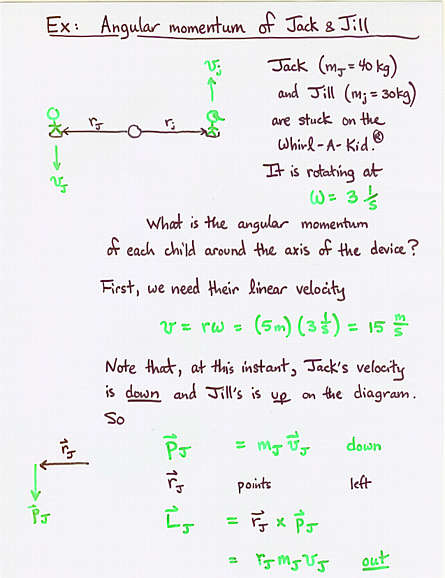 Ex: Angular momentum of Jack & Jill
Jack (m_J = 40 kg)
and Jill (m_j = 30kg)
are stuck on the
Whirl-A-Kid.®
It is rotating at
ω = 3 1/s
v_j
r_J r_j
v_J
What is the angular momentum
of each child around the axis of the device?
First, we need their linear velocity
v = rω = (5m) (3 1/s) = 15 m/s
Note that, at this instant, Jack's velocity
is down and Jill's is up on the diagram.
So
p⃗_J = m_J v⃗_J down
r⃗_J
r⃗_J points left
p⃗_J
L⃗_J = r⃗_J × p⃗_J
= r_J m_J v_J out